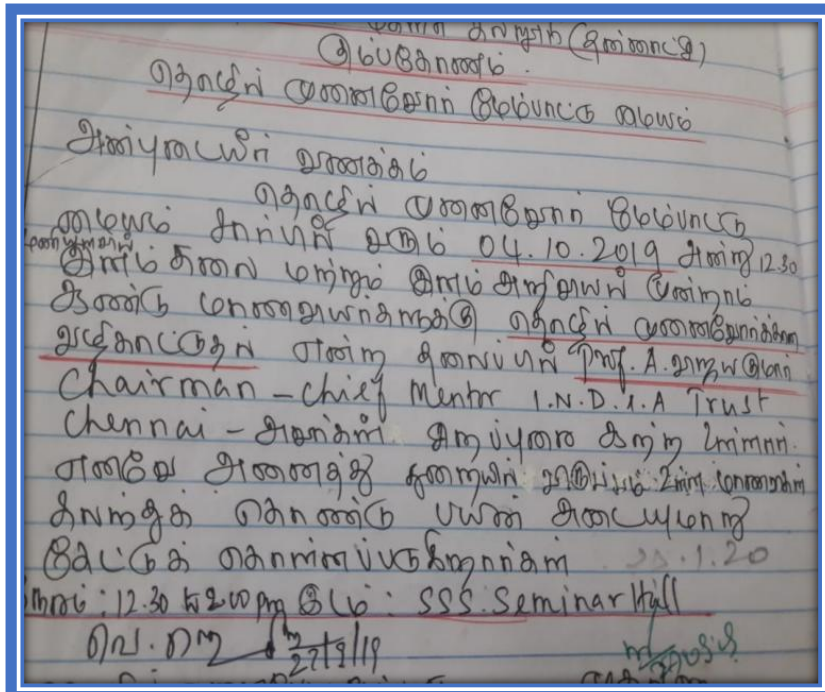 கலைக் கல்லூரி (தன்னாட்சி)
கும்பகோணம்.
தொழில் முனைவோர் மேம்பாட்டு மையம்
அன்புடையீர் வணக்கம்
தொழில் முனைவோர் மேம்பாட்டு
மையம் சார்பில் வரும் 04.10.2019 அன்று 12.30
இளம் கலை மற்றும் இளம் அறிவியல் மூன்றாம்
ஆண்டு மாணவியர்களுக்கு தொழில் முனைவோர்க்கான
வழிகாட்டுதல் என்ற தலைப்பில் Prof. A. ஜெயகுமார்
Chairman - Chief Mentor I.N.D.I.A Trust
Chennai - அவர்கள் சிறப்புரை ஆற்ற உள்ளார்.
எனவே அனைத்து துறையில் விருப்பம் உள்ள மாணவிகள்
கலந்துக் கொண்டு பயன் அடையுமாறு
கேட்டுக் கொள்ளப்படுகிறார்கள் 23.1.20
நேரம் : 12.30 to 2.00 pm இடம் : SSS. Seminar Hall
27/9/19